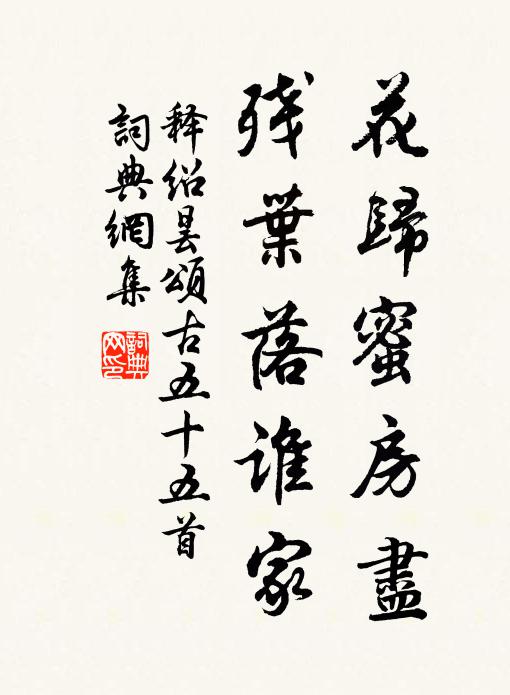 花歸蜜房盡
殘葉落誰家
释紹昙頌古五十五首
詞典網集
詞典网印